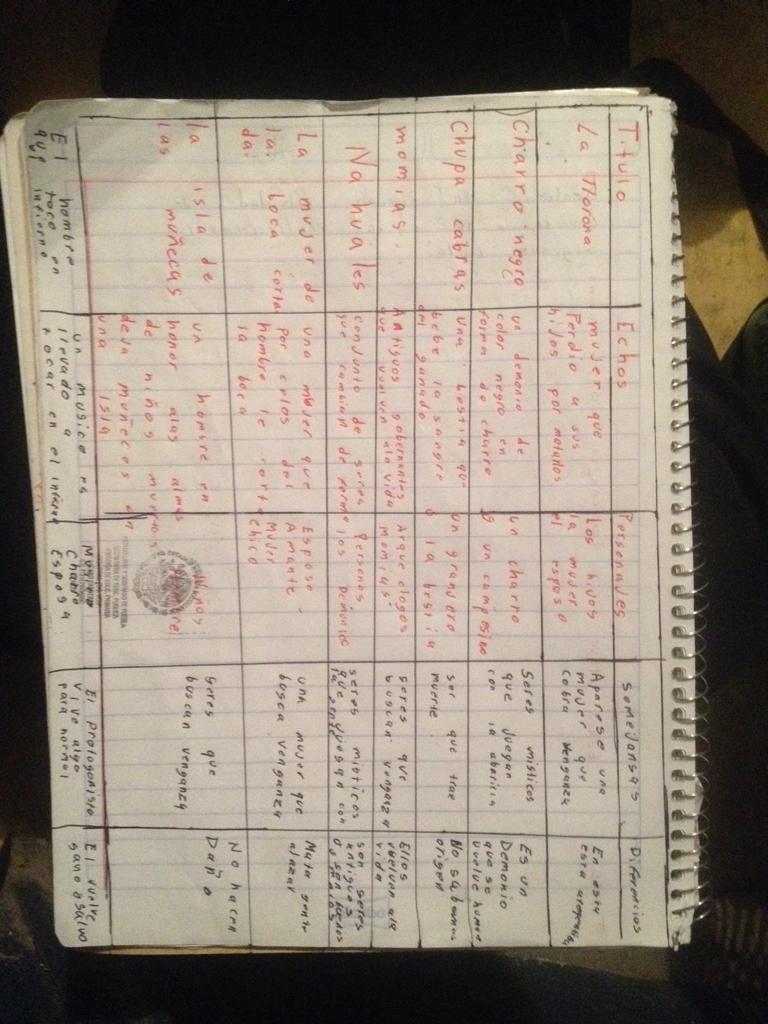 Titulo Echos Personajes Semejansas Diferencias
La llorona
mujer que
Perdio a sus
hijos por matarlos
Los hijos
la mujer
el esposo
Aparese una
mujer que
cobra venganza
En esta
esta
Charro negro
un demonio de
color negro en
forma de charro
un charro
y un campesino
Seres misticos
que juegan
con la abaricia
Es un
Demonio
que se
vuelve humano
Chupa cabras
una bestia que
bebe la sangre
del ganado
un granjero
y la bestia
ser que trae
muerte
No sabemos
origen
momias
Antiguos gobernantes
que vuelven ala vida
Arque ologos
momias
seres que
buscan venganza
Ellos
vuelven ala
vida
Nahuales
conjunto de seres
que cambian de forma
Personas
los Demonios
seres misticos
que juegan con
la gente
son seres
antiguos
o sean buenos
o malos
La mujer de
la boca corta
da.
una mujer que
por celos del
hombre le corto
la boca
Esposo
Amante
Mujer
chico
una mujer que
busca venganza
Mata gente
alazar
la isla de
las muñecas
un hombre en
honor alas almas
de niños muertos
deja muñecas en
una isla
Niños
Hombre
seres que
buscan venganza
No hacen
Daño
El hombre
que toco en
infierno
un musico es
llevado a
tocar en el infierno
Musico
Charro
Esposa
El protogonista
vive algo
para normal
El vuelve
sano a salvo